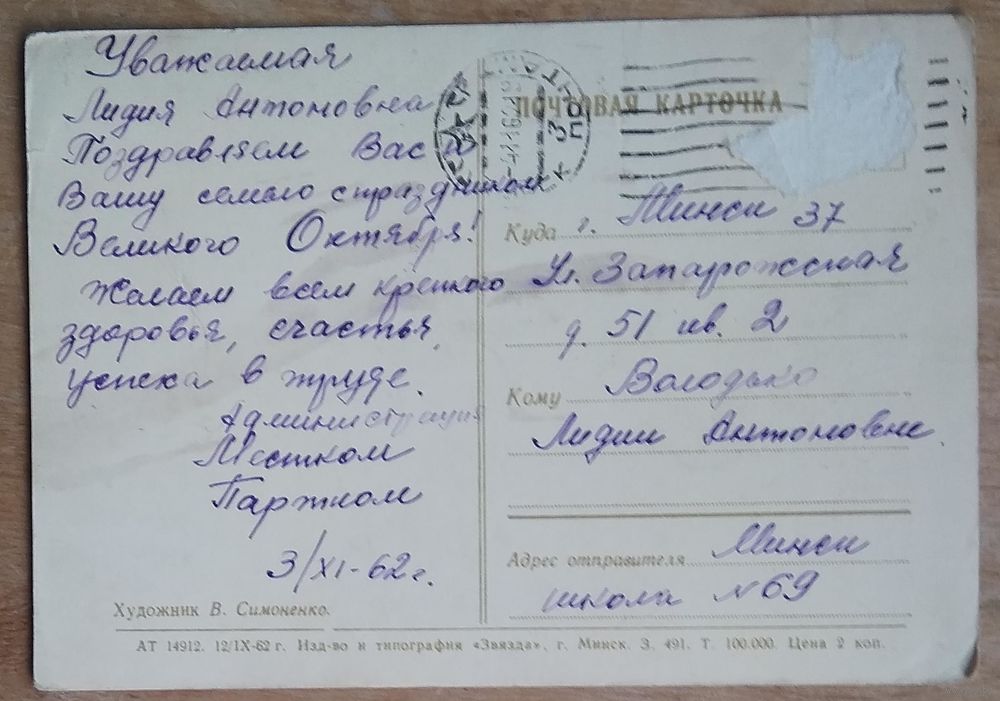 Уважаемая
Лидия Антоновна
Поздравляем Вас и
Вашу семью с праздником
Великого Октября!
Желаем всем крепкого
здоровья, счастья,
успеха в труде.
Администрация
Местком
Партком
3/XI-62г.
Художник В. Симоненко.
ПОЧТОВАЯ КАРТОЧКА
Куда г. Минск 37
Ул. Запарожская
д. 51 кв. 2
Кому Володько
Лидии Антоновне
Адрес отправителя Минск
школа №69
АТ 14912. 12/IX-62 г. Изд-во и типография «Звязда», г. Минск. З. 491. Т. 100.000. Цена 2 коп.